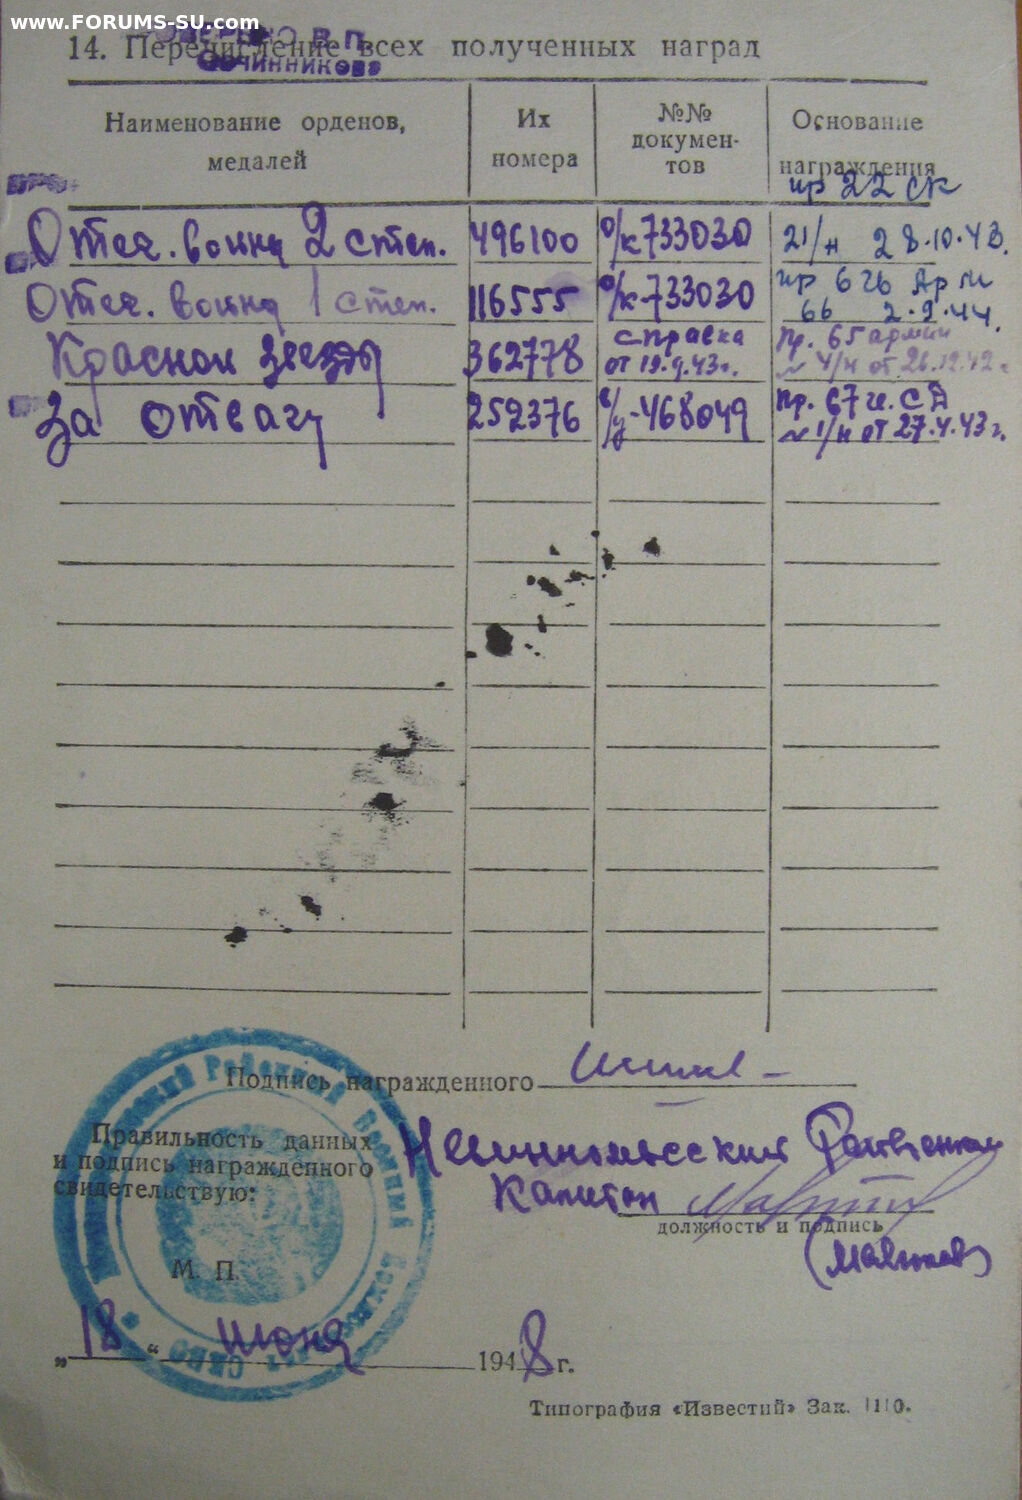 www.FORUMS-SU.com
14. Перечисление всех полученных наград
Овчинникова
Наименование орденов, медалей
Их номера
№№ документов
Основание награждения
пр 22 ск
Отеч. войны 2 степ. 496100 о/к 733030 21/н 28.10.43.
Отеч. войны 1 степ. 116555 о/к-733030 пр 6 гв Арм
66 2.9.44.
Красной звезды 362778 справка от 19.9.43г. Пр. 65 армии
№ 4/н от 26.12.42г
За отвагу 252376 -468049 Пр. 67 гв. СД
№ 1/н от 27.4.43г.
Подпись награжденного
Правильность данных
и подпись награжденного
свидетельствую:
Капитан
должность и подпись
М. П.
„18“ июня 1948 г.
Типография «Известий» Зак. 1110.